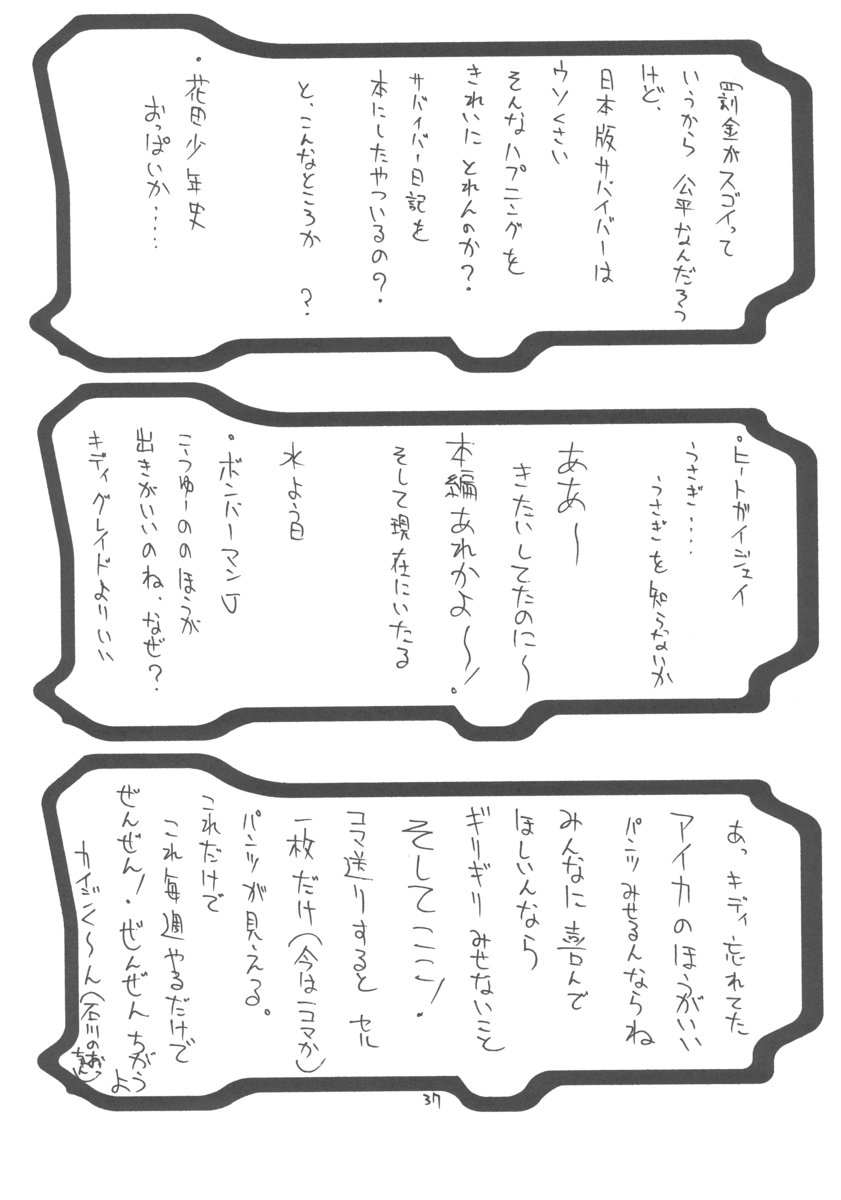 罰金がスゴイって
いうから 公平なんだろう
けど、
日本版サバイバーは
ウソくさい
そんなハプニングを
きれいに とれんのか?
サバイバー日記を
本にしたやついるの?
と、こんなところか ?
・花田少年史
おっぱいか……
・ヒートガイジェイ
うさぎ…
うさぎを知らないか
ああ〜
きたいしてたのに〜
本編あれかよ〜!
そして現在にいたる
水よう日
・ボンバーマンJ
こうゆーののほうが
出きがいいのね、なぜ?
キディグレイドよりいい
あっ キディ忘れてた
アイカのほうがいい
パンツみせるんならね
みんなに喜んで
ほしいんなら
ギリギリみせないこと
そしてここ!
コマ送りすると セル
一枚だけ(今は一コマか)
パンツが見える。
これだけで
これ毎週やるだけで
ぜんぜん!ぜんぜんちがうよ
カイジンく〜ん(石川の
37